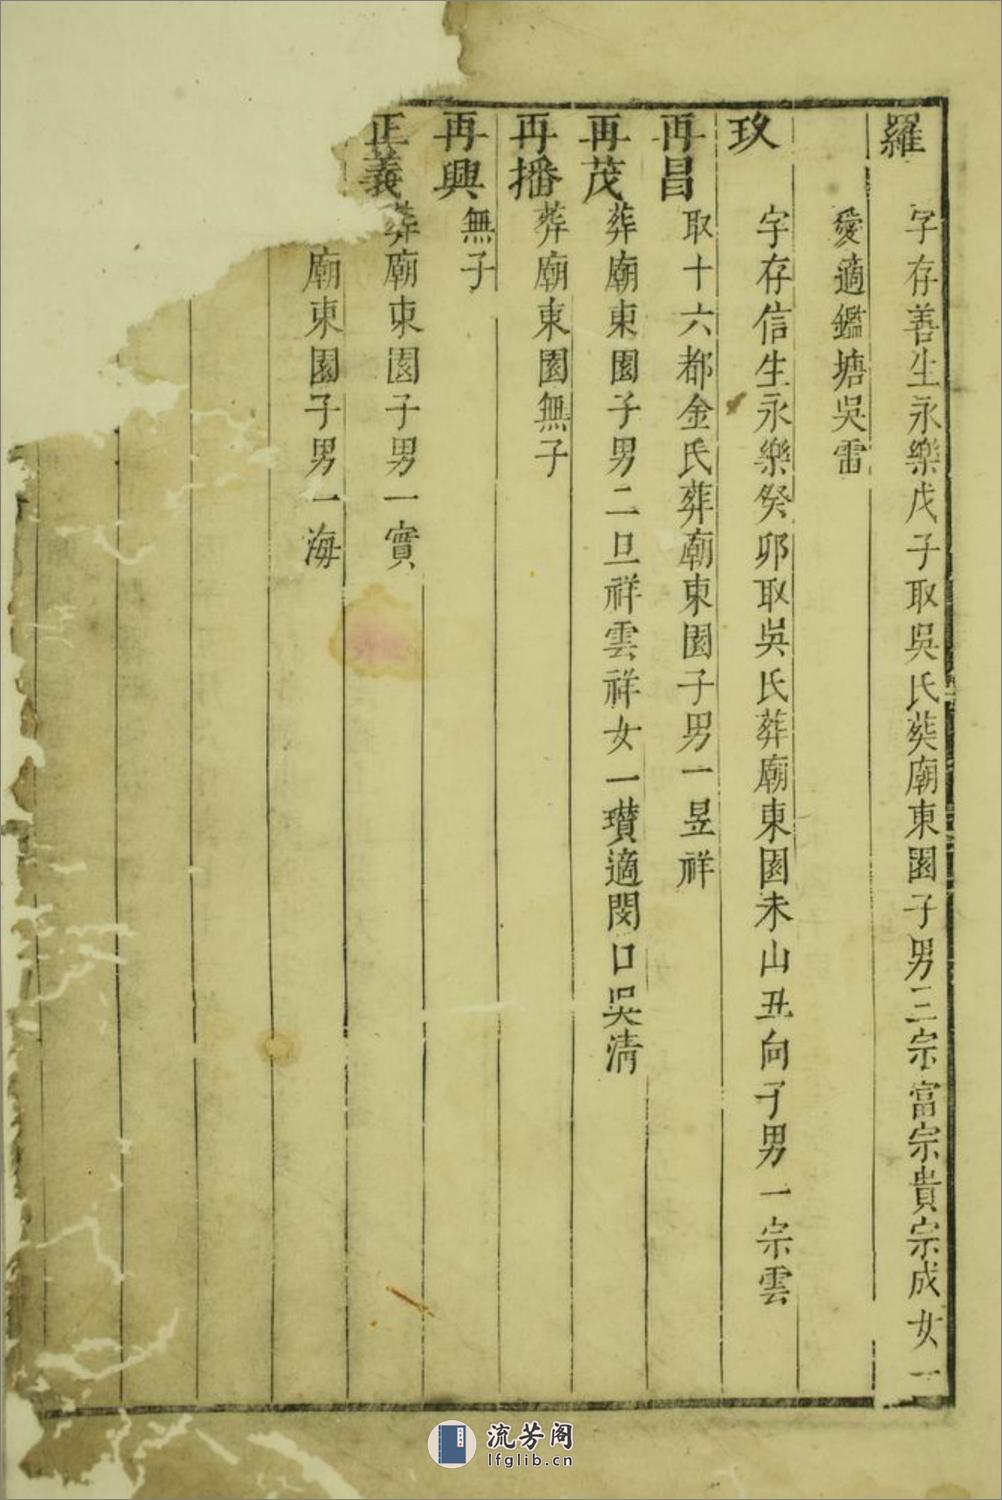 羅
字存善生永樂戊子取吳氏葬廟東園子男三宗富宗貴宗成女一
愛適鑑塘吳雷
玫
字存信生永樂癸卯取吳氏葬廟東園未山丑向子男一宗雲
再昌
取十六都金氏葬廟東園子男一昱祥
再茂
葬廟東園子男二旦祥雲祥女一瓚適閔口吳清
再播
葬廟東園無子
再興
無子
正義
葬廟東園子男一實
廟東園子男一海
流芳阁
lfglib.cn